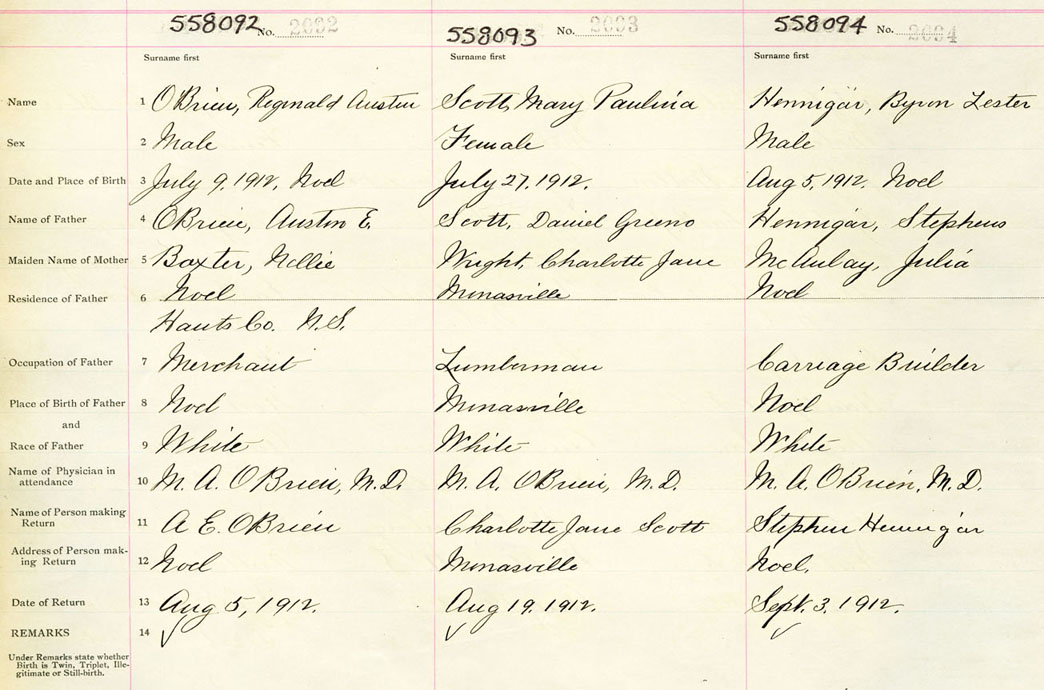 558092 No. 2092 558093 No. 2093 558094 No. 2094
Surname first Surname first Surname first
Name 1 OBrien, Reginald Austin Scott, Mary Paulina Hennigar, Byron Lester
Sex 2 Male Female Male
Date and Place of Birth 3 July 9, 1912, Noel July 27, 1912. Aug 5, 1912. Noel
Name of Father 4 OBrien, Austin E. Scott, Daniel Greeno Hennigar, Stephens
Maiden Name of Mother 5 Baxter, Nellie Wright, Charlotte Jane McAulay, Julia
Residence of Father 6 Noel Minasville Noel
Hants Co. N.S.
Occupation of Father 7 Merchant Lumberman Carriage Builder
Place of Birth of Father 8 Noel Minasville Noel
and
Race of Father 9 White White White
Name of Physician in
attendance 10 M. A. OBrien, M.D. M. A. OBrien, M.D. M. A. OBrien, M.D.
Name of Person making
Return 11 A E. OBrien Charlotte Jane Scott Stephen Hennigar
Address of Person mak-
ing Return 12 Noel Minasville Noel.
Date of Return 13 Aug 5, 1912. Aug 19. 1912. Sept. 3. 1912.
REMARKS 14
Under Remarks state whether
Birth is Twin, Triplet, Ille-
gitimate or Still-birth.